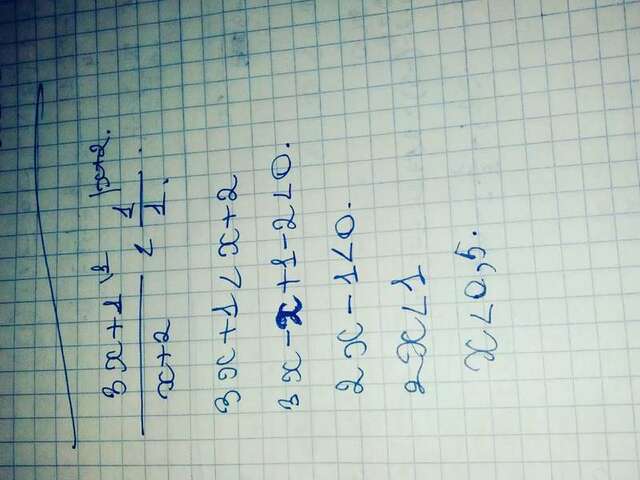 3x+1 \1 / x+2 < 1 |x+2 / 1.
3x+1<x+2
3x-x+1-2<0.
2x-1<0.
2x<1
x<0,5.